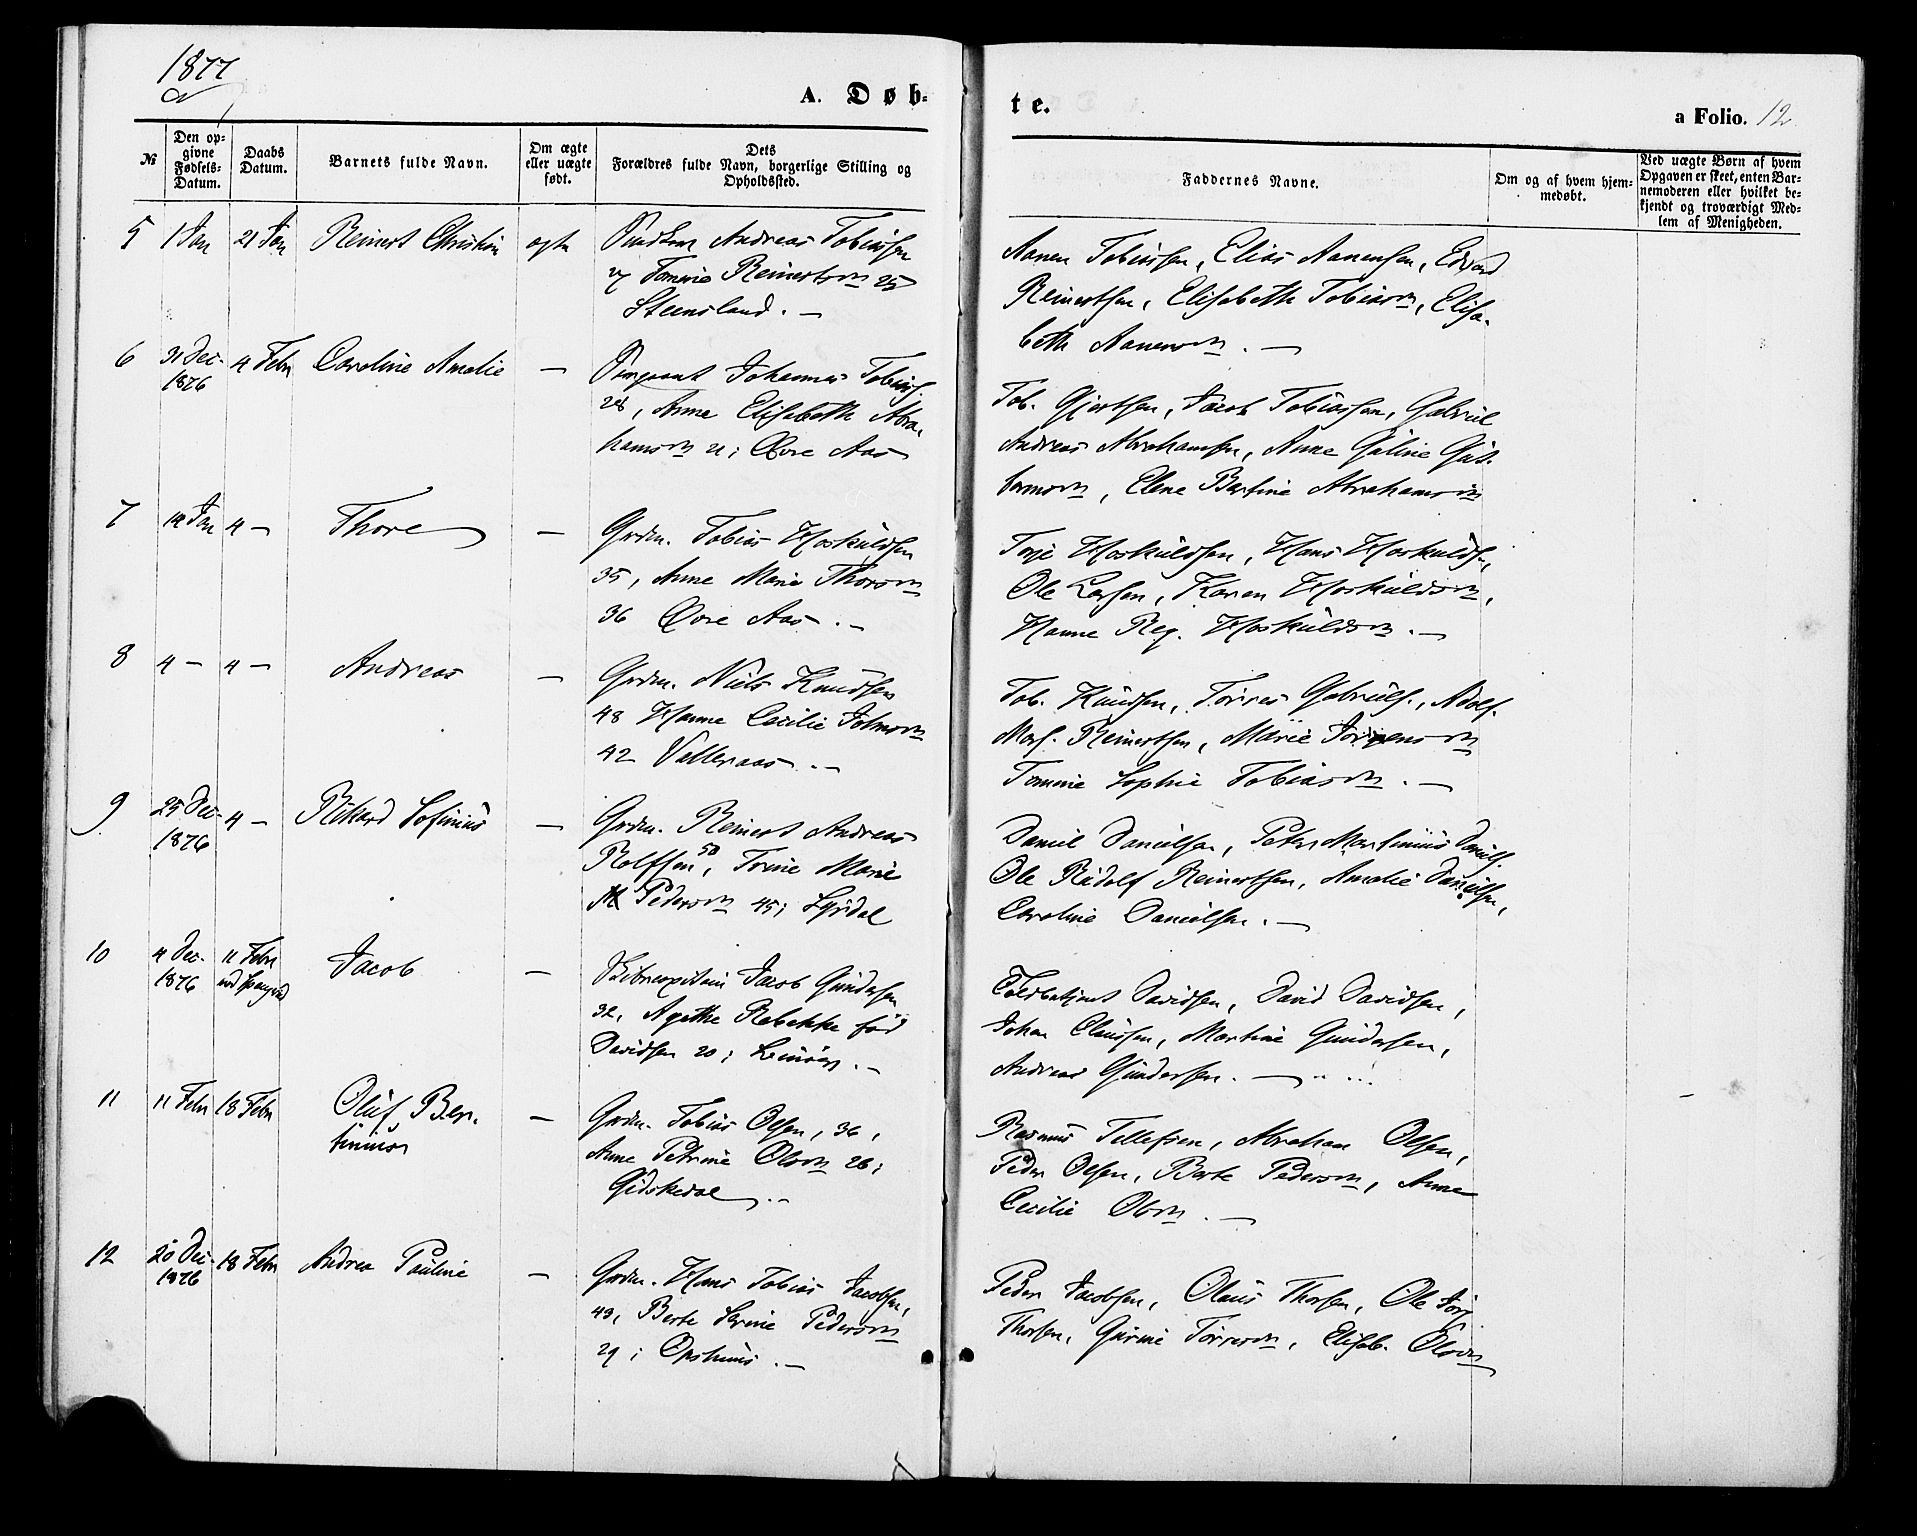 1877
A. Døb-
te.
a Folio. 12
№
Den op-
givne
Fødsels-
Datum.
Daabs
Datum.
Barnets fulde Navn.
Om ægte
eller uægte
født.
Dets
Forældres fulde Navn, borgerlige Stilling og
Opholdssted.
Faddernes Navne.
Om og af hvem hjem-
medøbt.
Ved uægte Børn af hvem
Opgaven er skeet, enten Bar-
nemoderen eller hvilket be-
kjendt og troværdigt Med-
lem af Menigheden.
5 1 Jan 21 Jan Reinert Christian ægte
Andreas Tobiassen
Tomine Reinertsdn 25
Steensland. —
Aanen Tobiassen, Elias Aanensen, Edvard
Reinertsen, Elisabeth Tobiasdn, Elisa-
beth Aanensdn. —
6 31 Dec. 4 Febr Caroline Amalie —
1876
Sergeant Johannes Tobiass.
28, Anne Elisabeth Abra-
hamsdn 21; Øvre Aas
Tob. Gjertsen, Jacob Tobiassen, Gabriel
Andreas Abrahamsen, Anne Galine
Elene Bertine Abrahamsdn
7 Jan 4 — Thore —
Grdm. Tobias Hoskuldsen
35, Anne Marie Thorsdn
36 Øvre Aas. —
Terje Hoskuldsen, Hans Hoskulds.,
Ole Larsen, Karen Hoskuldsdn,
Hanne Reg. Hoskuldsdn. —
8 4 — 4 — Andreas —
Grdm. Niels Knudsen
48 Hanne Cecilie Johnsdn
42 Valleraas. —
Tob. Knudsen, Tørres Gabriels., Adolf
Mars. Reinertsen, Marie Jørgensdn
Tomine Sophie Tobiasdn. —
9 25 Dec. 4 — Rikard Sofinius —
1876
Grdm. Reinert Andreas
Rolfsen 50, Trine Marie
Pedersdn 45; Lyrdal
Daniel Danielsen, Peter Martinius Daniels.
Ole Rudolf Reinertsen, Amalie Danielsen,
Caroline Danielsen. —
10 4 Dec. 11 Febr Jacob —
1876
Skibscapitain Jacob Gundersen
32, Agathe Rebekke fød
Davidsen 20;
Davidsen, David Davidsen,
Johan Claussen, Martine Gundersen,
Andreas Gundersen. —
11 11 Febr 18 Febr Oluf Ber- —
tinius
Grdm. Tobias Olsen, 36,
Anne Petrine Olsdn 26;
Gidskedal. —
Rasmus Tellefsen, Abraham Olsen,
Peder Olsen, Berte Pedersdn, Anne
Cecilie Olsdn. —
12 20 Dec. 18 Febr Andrea Pauline —
1876
Grdm. Hans Tobias Jacobsen,
43, Berte Serine Pedersdn
29; Opshuus. —
Peder Jacobsen, Olaus Thorsen, Ole Jørg.
Thorsen, Gurine Tørresdn, Elisab. Olsdn